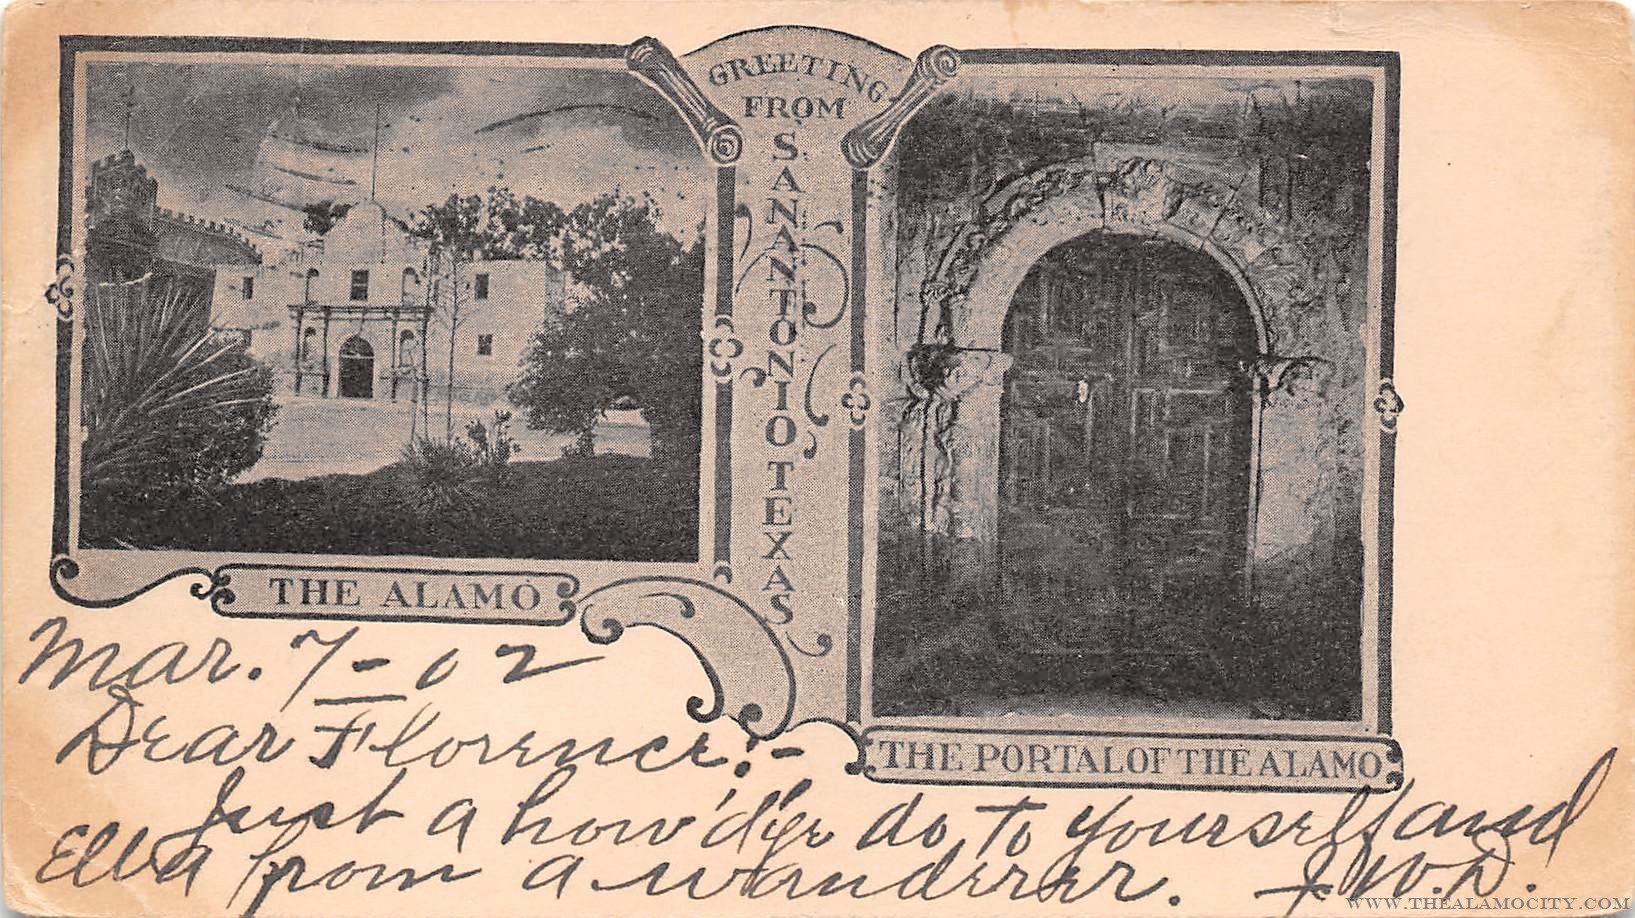 GREETING
FROM
SAN ANTONIO TEXAS
THE ALAMO
THE PORTAL OF THE ALAMO
Mar. 7-02
Dear Florence:-
Just a how'd'ye do to yourself and
Ella from a wanderer. J.W.D.
WWW.THEALAMOCITY.COM